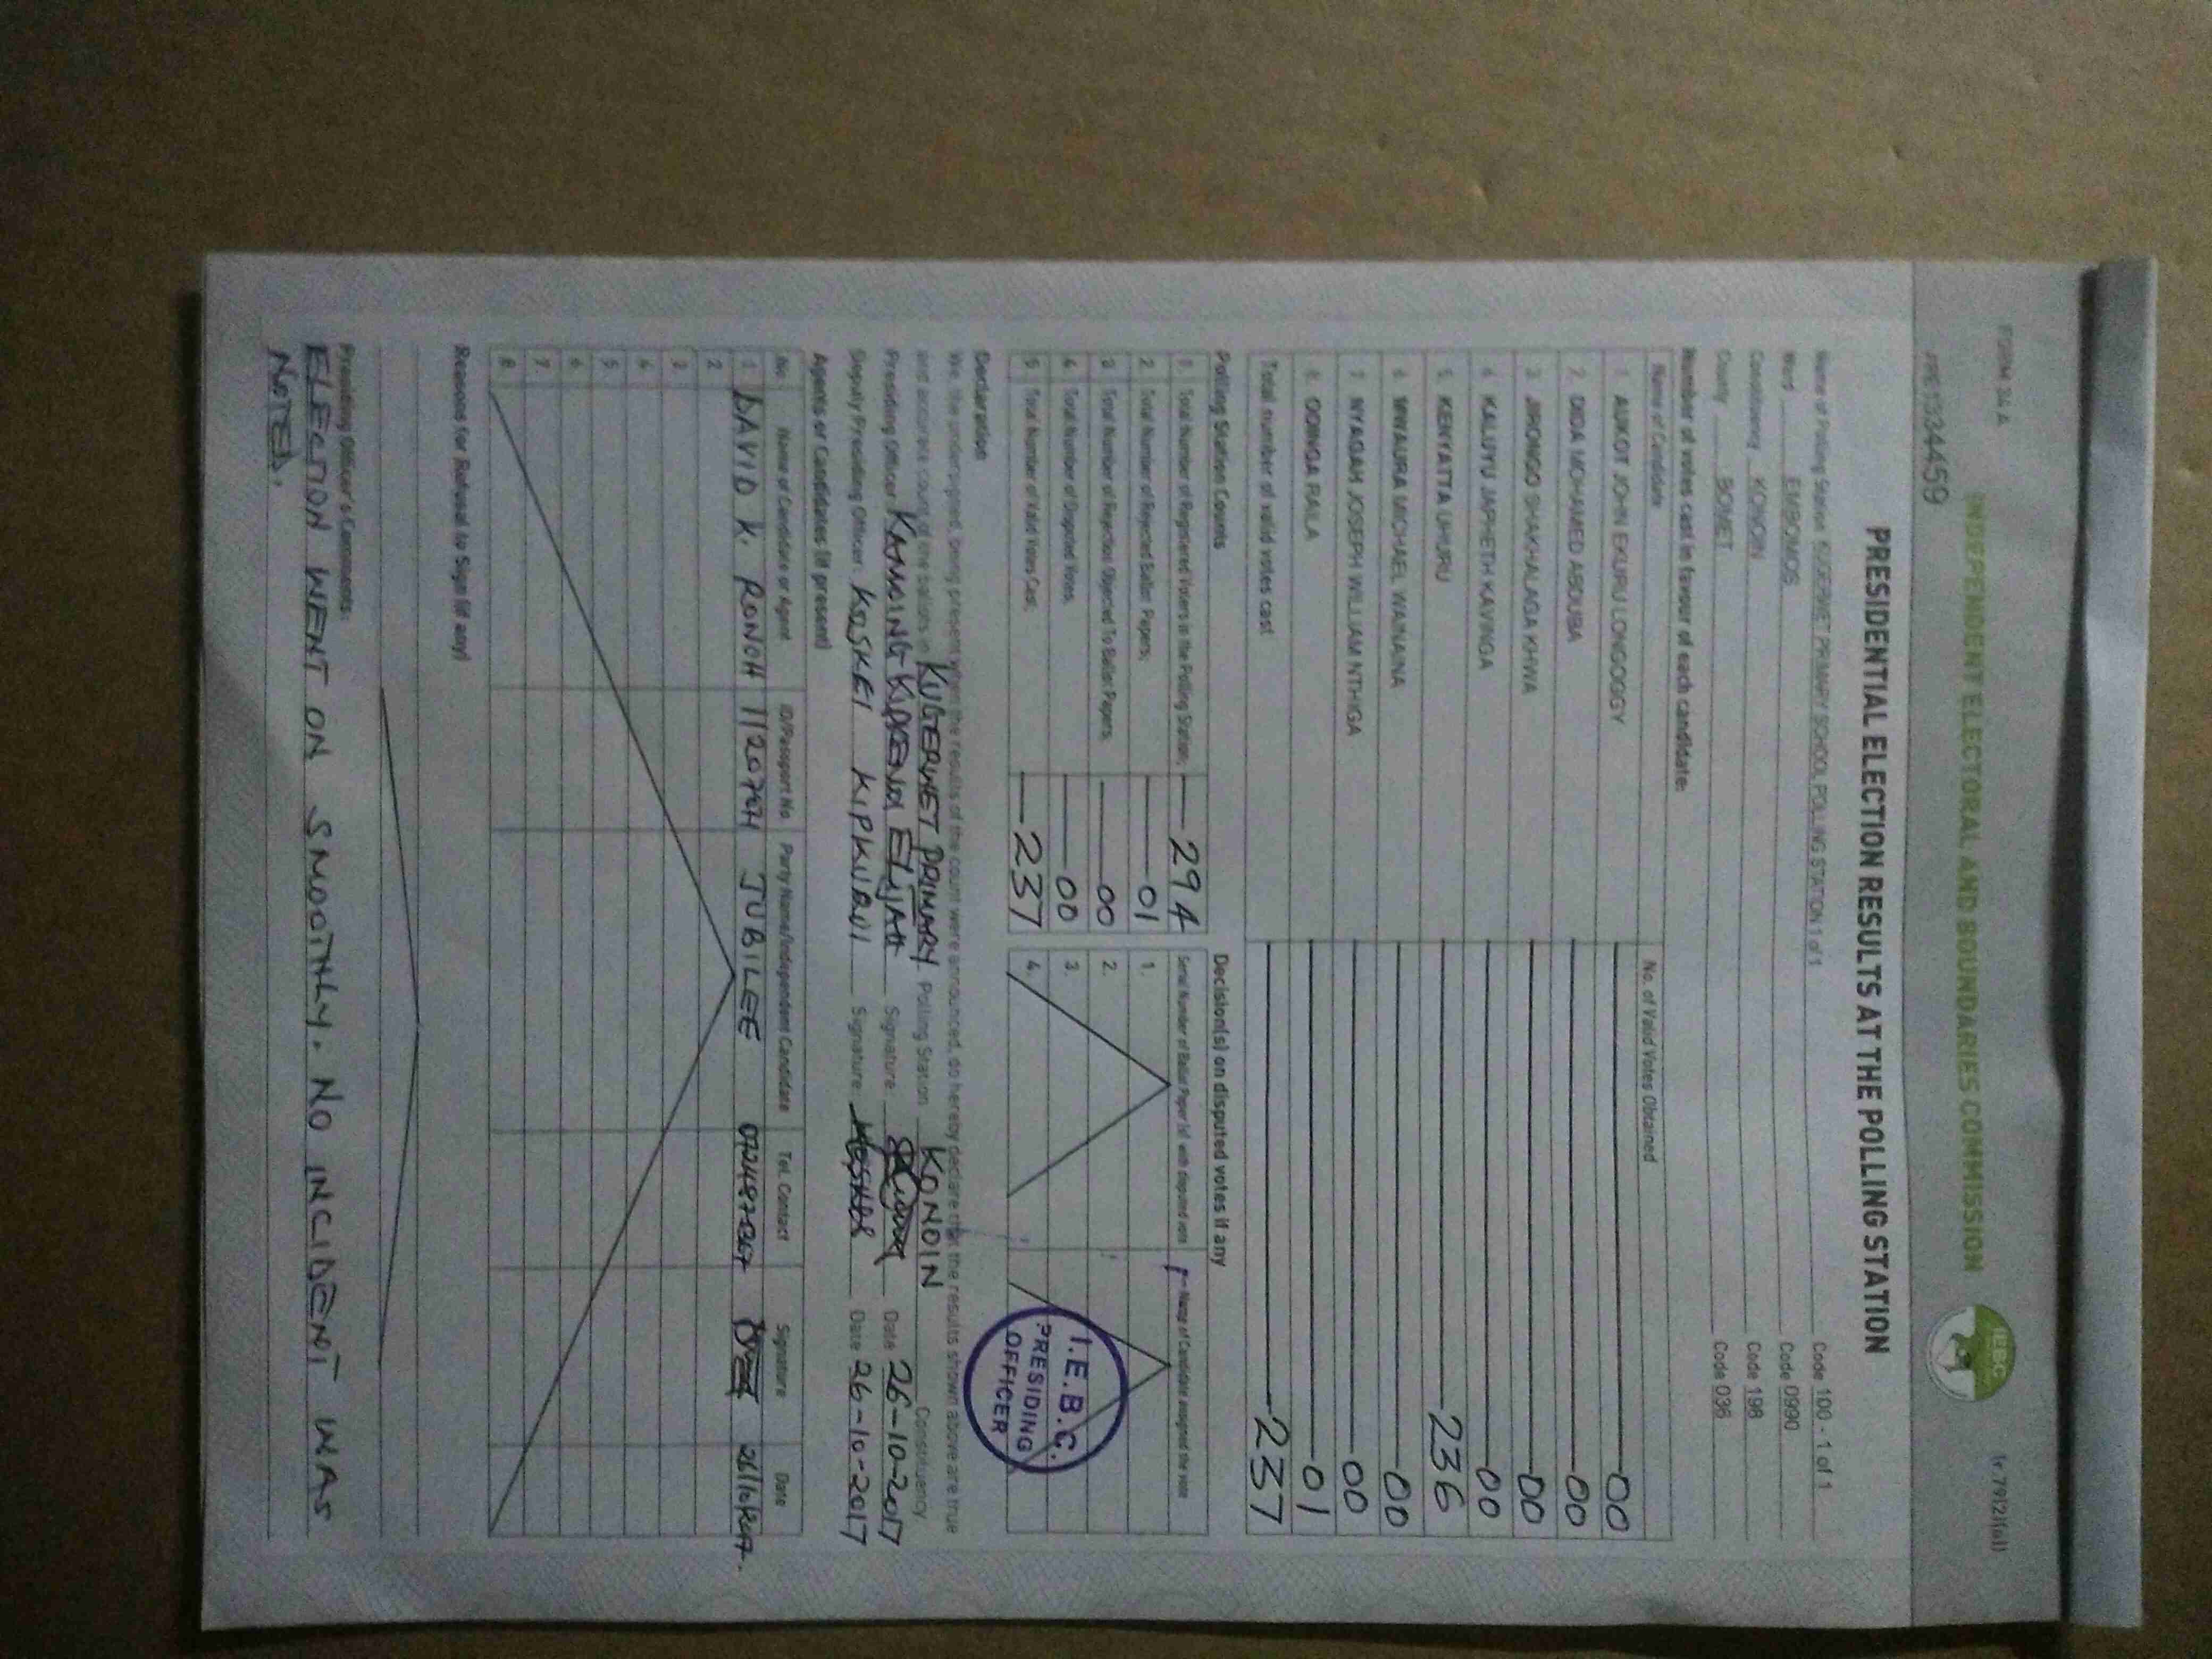 FORM 34 A
r. 79(2)(a)
INDEPENDENT ELECTORAL AND BOUNDARIES COMMISSION
IEBC
PRE1334459
PRESIDENTIAL ELECTION RESULTS AT THE POLLING STATION
Name of Polling Station KUGERWET PRIMARY SCHOOL POLLING STATION 1 of 1 Code 100 - 1 of 1
Ward EMBOMOS Code 0990
Constituency KONOIN Code 198
County BOMET Code 036
Number of votes cast in favour of each candidate:
Name of Candidate No. of Valid Votes Obtained
1 AUKOT JOHN EKURU LONGOGGY 00
2. DIDA MOHAMED ABDUBA 00
3 JIRONGO SHAKHALAGA KHWA 00
4 KALUYU JAPHETH KAVINGA 00
5. KENYATTA UHURU 236
6 MWAURA MICHAEL WAINAINA 00
7 NYAGAH JOSEPH WILLIAM NTHIGA 00
8. ODINGA RAILA 01
Total number of valid votes cast 237
Polling Station Counts
1. Total Number of Registered Voters in the Polling Station; 294
2. Total Number of Rejected Ballot Papers; 01
3 Total Number of Rejection Objected To Ballot Papers; 00
4 Total Number of Disputed Votes; 00
5 Total Number of Valid Votes Cast; 237
Decision(s) on disputed votes if any
Serial Number of Ballot Paper (s) with disputed vote Name of Candidate assigned the vote
1.
2.
3.
4.
I.E.B.C.
PRESIDING
OFFICER
Declaration
We, the undersigned, being present when the results of the count were announced, do hereby declare that the results shown above are true
and accurate count of the ballots in KUGERWET PRIMARY Polling Station KONOIN Constituency
Presiding Officer ELIJAH Signature: Date 26-10-2017
Deputy Presiding Officer: KOSKEI KIPKURUI Signature: Date 26-10-2017
Agents or Candidates (if present)
No. Name of Candidate or Agent ID/Passport No Party Name/Independent Candidate Tel. Contact Signature Date
1 DAVID K. RONOH JUBILEE
2
3
4
5
6
7
8
Reasons for Refusal to Sign (if any)
Presiding Officer's Comments:
ELECTION WENT ON SMOOTHLY. NO INCIDENT WAS
NOTED.